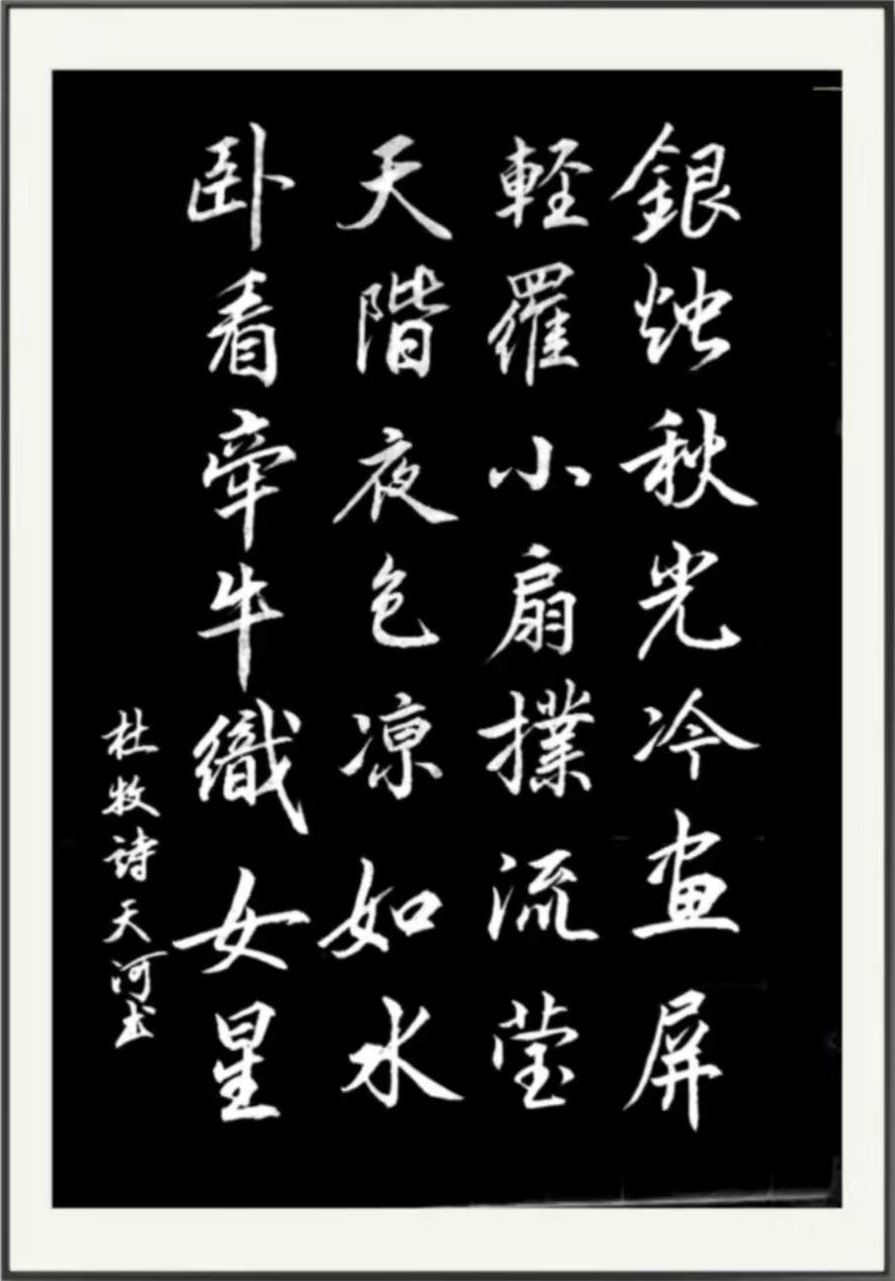 銀烛秋光冷画屏
軽羅小扇撲流莹
天階夜色凉如水
卧看牵牛織女星
杜牧詩天河书